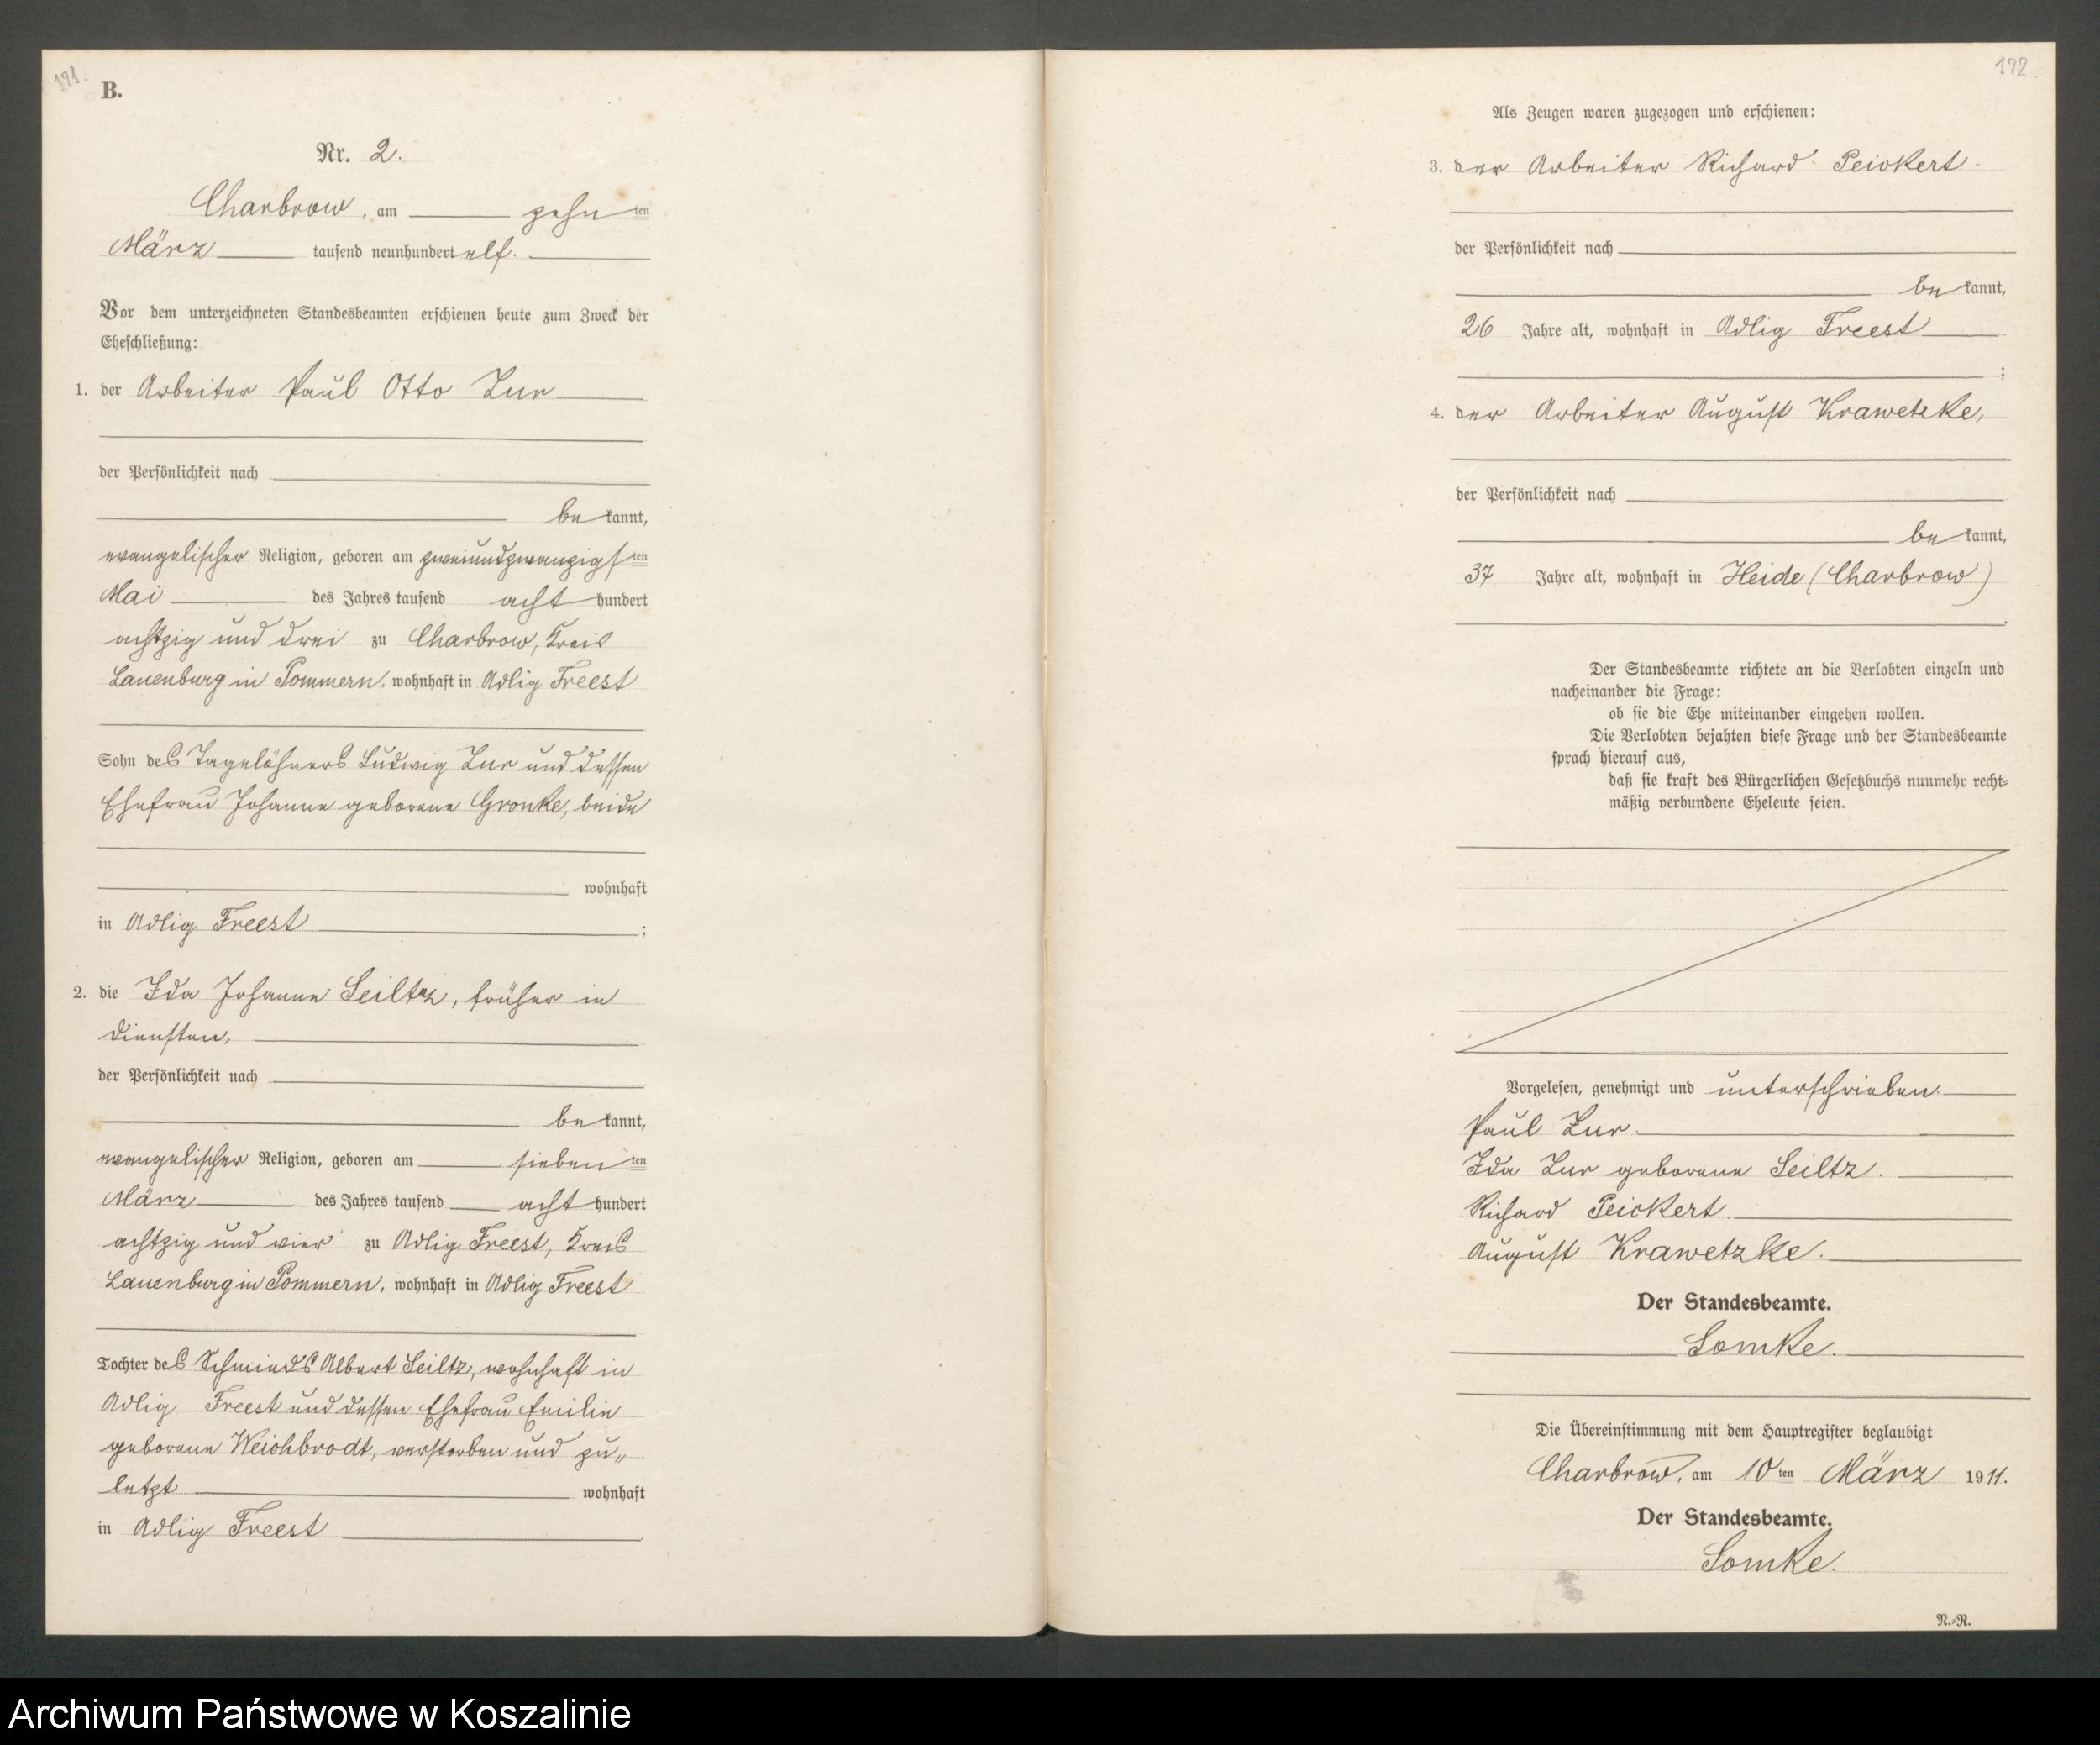 171.
B.
Nr. 2.
Charbrow, am zehn ten
März tausend neunhundert elf.
Vor dem unterzeichneten Standesbeamten erschienen heute zum Zweck der
Eheschließung:
1. der Arbeiter Paul Otto Zur
der Persönlichkeit nach
be kannt,
evangelischer Religion, geboren am zweiundzwanzigsten
Mai des Jahres tausend acht hundert
achtzig und drei zu Charbrow, Kreis
Lauenburg in Pommern, wohnhaft in Adlig Freest
Sohn des Tagelöhners Ludwig Zur und dessen
Ehefrau Johanne geborene Gronke, beide
wohnhaft
in Adlig Freest ;
2. die Ida Johanne Seiltz, früher in
Diensten,
der Persönlichkeit nach
be kannt,
evangelischer Religion, geboren am sieben ten
März des Jahres tausend acht hundert
achtzig und vier zu Adlig Freest, Kreis
Lauenburg in Pommern, wohnhaft in Adlig Freest
Tochter des Schmieds Albert Seiltz, wohnhaft in
Adlig Freest und dessen Ehefrau Emilie
geborene Weichbrodt, verstorben und zu„
letzt wohnhaft
in Adlig Freest
172
Als Zeugen waren zugezogen und erschienen:
3. der Arbeiter Richard Peickert.
der Persönlichkeit nach
be kannt,
26 Jahre alt, wohnhaft in Adlig Freest
;
4. der Arbeiter August Krawetzke,
der Persönlichkeit nach
be kannt,
37 Jahre alt, wohnhaft in Heide (Charbrow)
Der Standesbeamte richtete an die Verlobten einzeln und
nacheinander die Frage:
ob sie die Ehe miteinander eingehen wollen.
Die Verlobten bejahten diese Frage und der Standesbeamte
sprach hierauf aus,
daß sie kraft des Bürgerlichen Gesetzbuchs nunmehr recht=
mäßig verbundene Eheleute seien.
Vorgelesen, genehmigt und unterschrieben.
Paul Zur.
Ida Zur geborene Seiltz.
Richard Peickert.
August Krawetzke.
Der Standesbeamte.
Lomke.
Die Übereinstimmung mit dem Hauptregister beglaubigt
Charbrow, am 10 ten März 1911.
Der Standesbeamte.
Lomke.
N.=R.
Archiwum Państwowe w Koszalinie